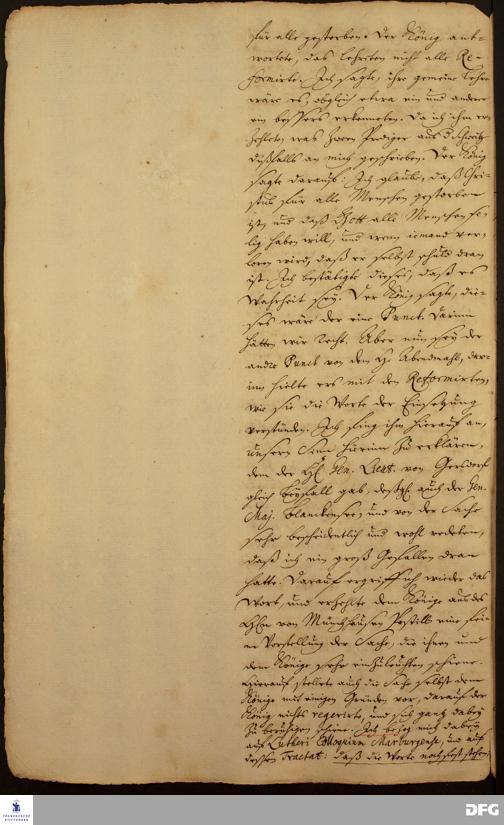 für alle gestorben. Der König ant-
wortete, das lehrten nicht alle Re-
formirte. Ich sagte, ihre gemeine Lehre
wäre es, obgleich etwa ein und anderer
ein bessers erkenneten. Da ich ihm er-
zehlete, was zween Prediger aus d. Schweitz
dißfalls an mich geschrieben. Der König
sagte darauf: Ich glaube, daß Chri-
stus für alle Menschen gestorben
ist, und daß Gott alle Menschen se-
lig haben will, und wenn iemand ver-
loren wird, daß er selbst schuld dran
ist. Ich bestätigte dieses, daß es
Wahrheit sey. Der König sagte, die-
ses wäre der eine Punct. Darinn
hätten wir Recht. Aber nun sey der
andre Punct von dem H. Abendmahl, dar-
inn hielte ers mit den Reformirten,
wie sie die Worte der Einsetzung
verstünden. Ich fing ihm hierauf an,
unsern Sinn hierinn zu erklären,
dem der H. Gen. Lieut. von Gersdorf
gleich beyfall gab, desgl. auch der Gen.
Maj. Blanckensee, und von der Sache
sehr bescheidentlich und wohl redeten,
daß ich ein groß Gefallen dran
hatte. Darauf ergriff ich wieder das
Wort, und erzehlte dem Könige aus des
Hn von Münchhausen Postill eine fei-
ne Vorstellung der Sache, die ihnen und
dem Könige sehr einzuleuchten schiene.
Hierauf stellete auch die Sache selbst dem
Könige mit einigen Gründen vor, darauf der
König nichts regerirte, und sich gantz dabey
zu beruhigen schiene. Ich bezog mich dabey
auf Lutheri Colloquium Marburgense, und auf
dessen Tractat: daß die Worte noch fest stehen
FRANCKESCHE
STIFTUNGEN
DFG